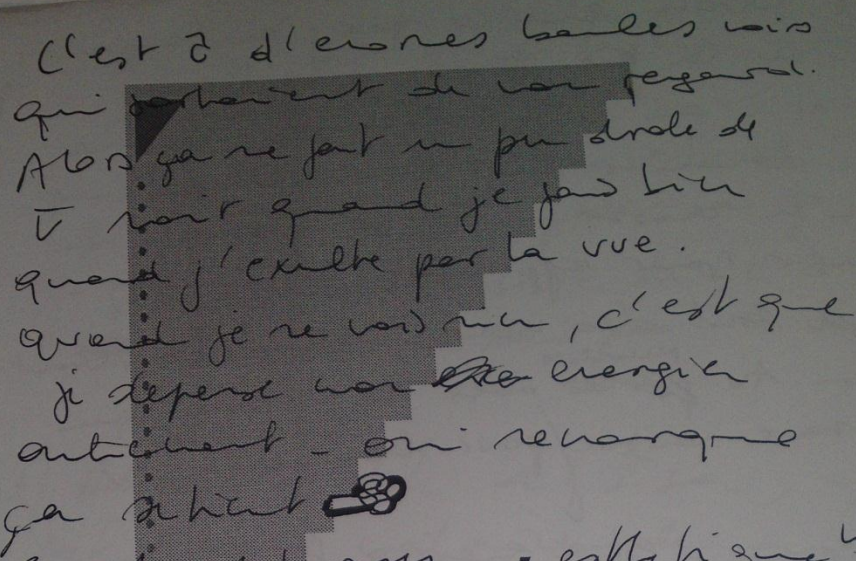 C'est à d'enormes boules vois
qui partaient de mon regard.
Alors ça me fait un peu drole de
voir quand je fais bien
quand j'exulte par la vue.
quand je ne vois rien, c'est que
je dépense mon energie
autrement - oui remarque
ça se tient